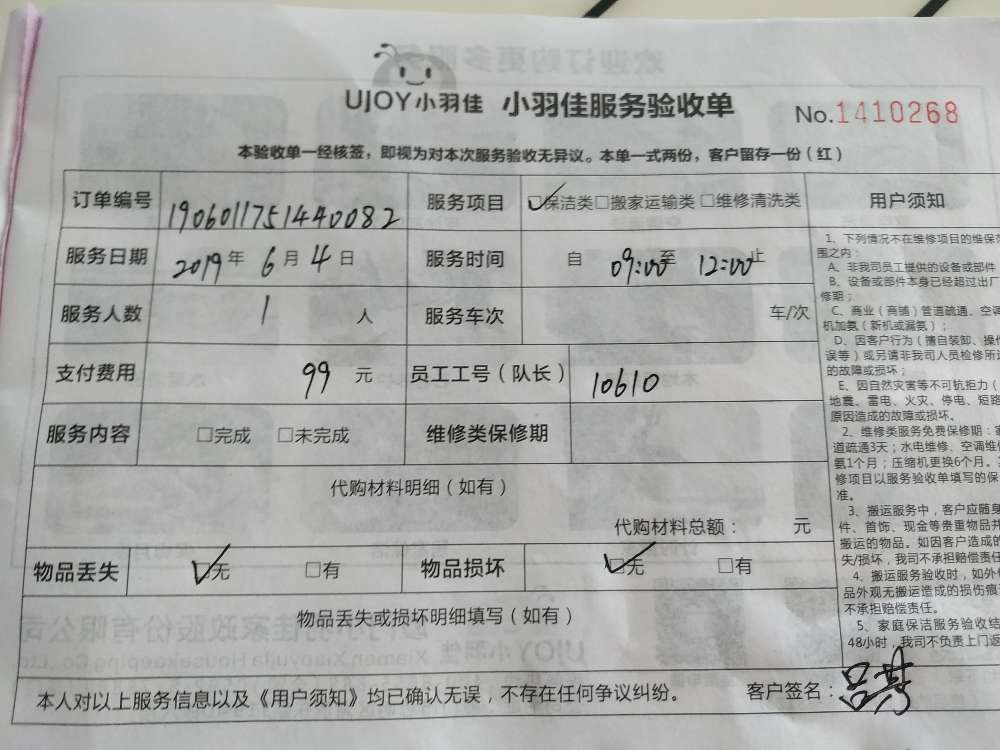 UJOY小羽佳 小羽佳服务验收单 No.1410268
本验收单一经核签，即视为对本次服务验收无异议。本单一式两份，客户留存一份（红）
订单编号 1906011751440082 服务项目 ☑保洁类□搬家运输类□维修清洗类
服务日期 2019年6月4日 服务时间 自 09:00至 12:00止
服务人数 1 人 服务车次 车/次
支付费用 99 元 员工工号（队长） 10610
服务内容 □完成 □未完成 维修类保修期
代购材料明细（如有）
代购材料总额： 元
物品丢失 ☑无 □有 物品损坏 ☑无 □有
物品丢失或损坏明细填写（如有）
本人对以上服务信息以及《用户须知》均已确认无误，不存在任何争议纠纷。 客户签名：
用户须知
1、下列情况不在维修项目的维保范
围之内：
A、非我司员工提供的设备或部件
B、设备或部件本身已经超过出厂
修期；
C、商业（商铺）管道疏通、空调
机加氨（新机或漏氨）；
D、因客户行为（擅自装卸、操作
误等）或另请非我司人员检修所
的故障或损坏；
E、因自然灾害等不可抗拒力（
地震、雷电、火灾、停电、短路
原因造成的故障或损坏。
2、维修类服务免费保修期：
道疏通3天；水电维修、空调维
氨1个月；压缩机更换6个月。
修项目以服务验收单填写的保
准。
3、搬运服务中，客户应随身
件、首饰、现金等贵重物品并
搬运的物品。如因客户造成的
失/损坏，我司不承担赔偿责任
4、搬运服务验收时，如外
品外观无搬运造成的损伤痕
不承担赔偿责任。
5、家庭保洁服务验收结
48小时，我司不负责上门返